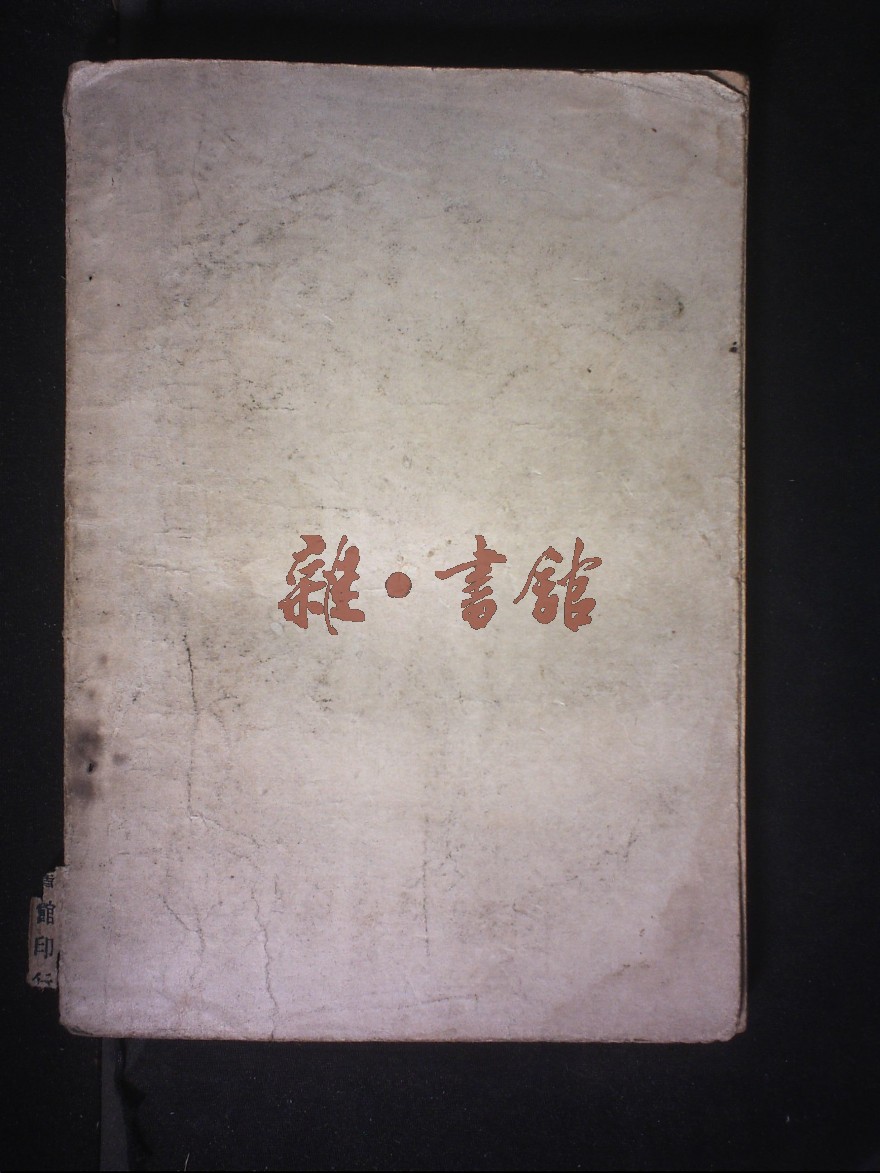 雜•書館
館印行